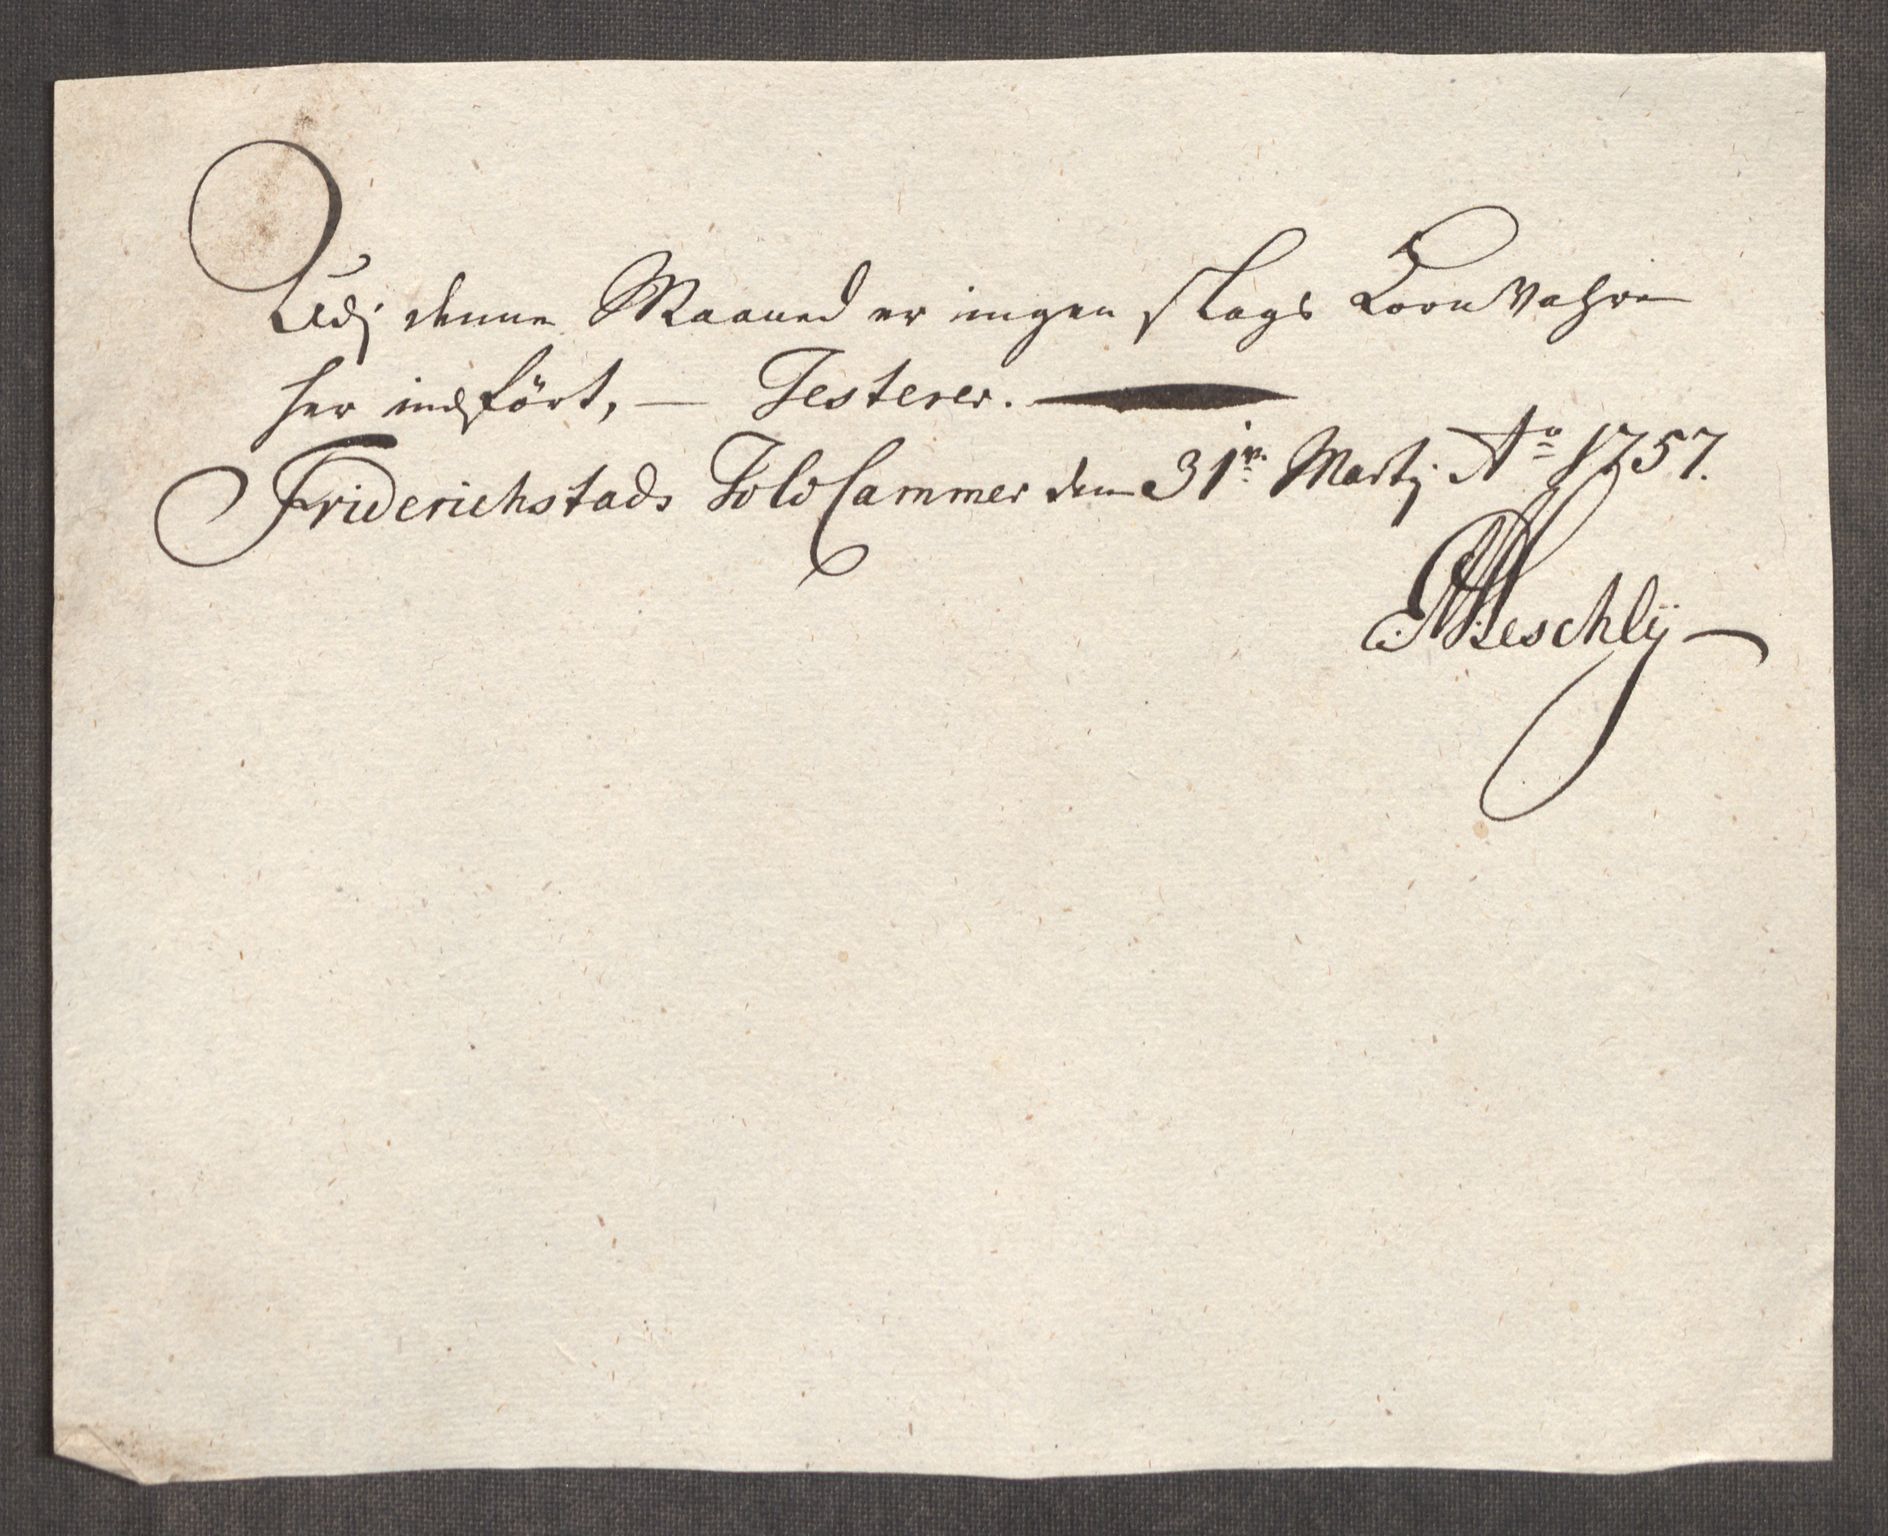 Udj denne Maaned er ingen slags Korn Vahre
her indført, — Testerer.
Friderichstads Told Cammer den 31te Martj Ao 1757.